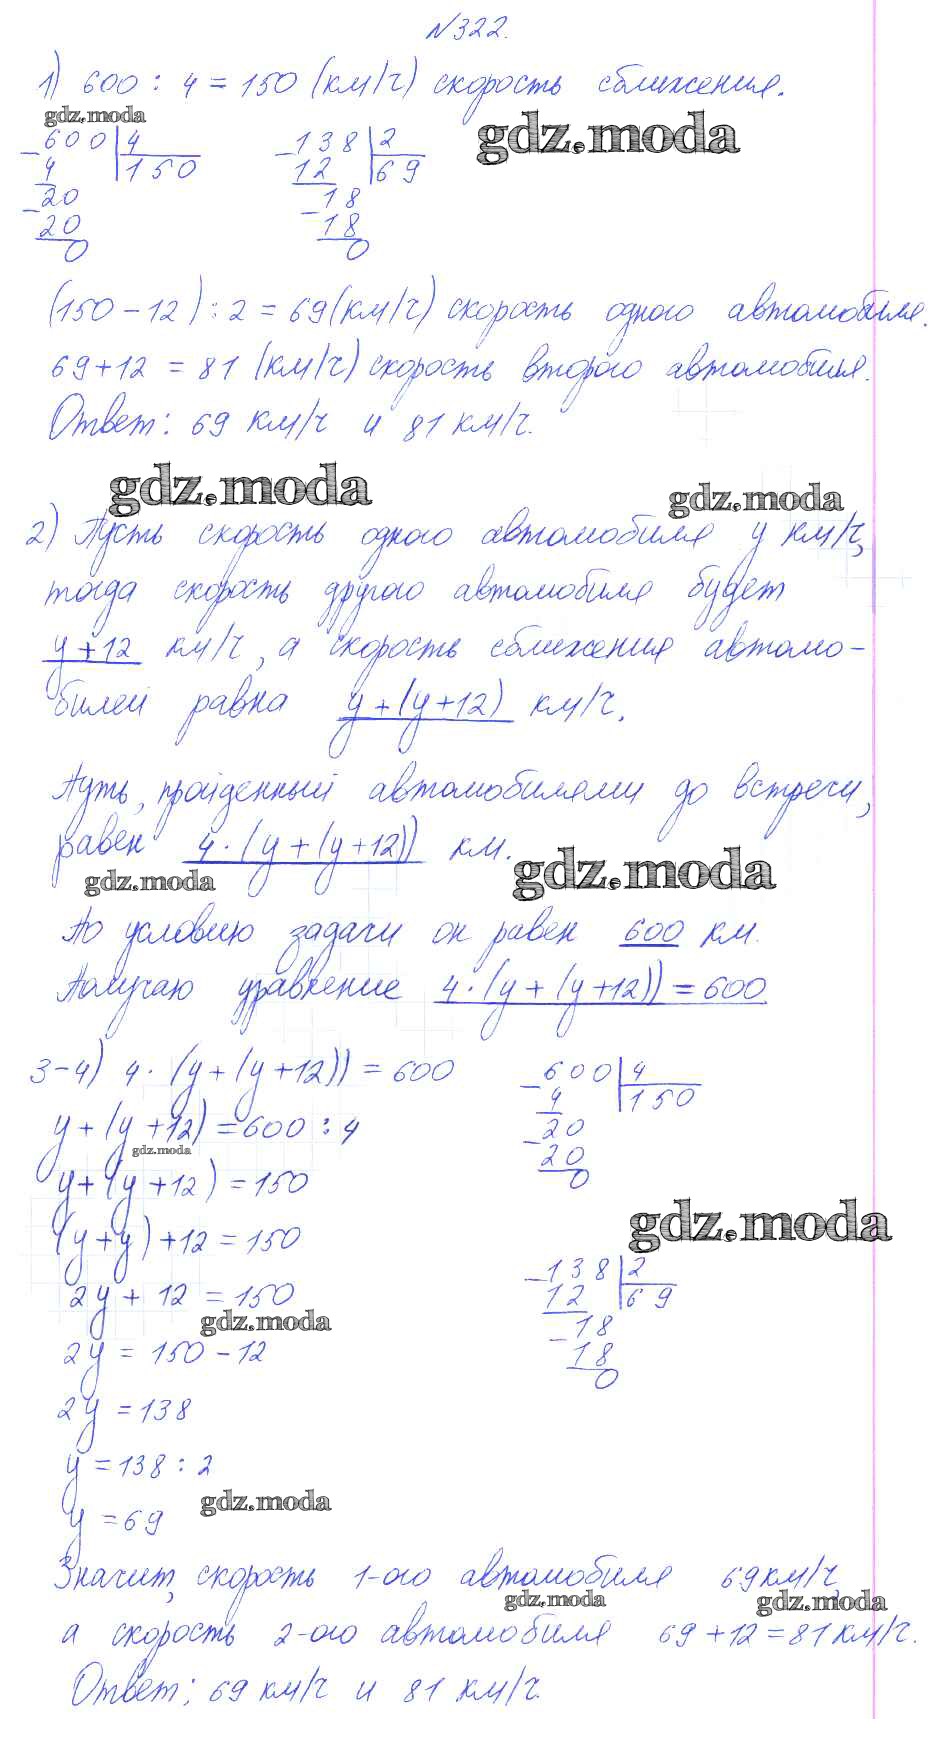 №322.
1) 600 : 4 = 150 (км/ч) скорость сближения.
gdz.moda
gdz.moda
600 4
4 150
20
20
0
138 2
12 69
18
18
0
(150 - 12) : 2 = 69 (км/ч) скорость одного автомобиля.
69 + 12 = 81 (км/ч) скорость второго автомобиля.
Ответ: 69 км/ч и 81 км/ч.
gdz.moda
gdz.moda
2) Пусть скорость одного автомобиля y км/ч,
тогда скорость другого автомобиля будет
y + 12 км/ч, а скорость сближения автомо-
билей равна y + (y + 12) км/ч.
Путь, пройденный автомобилями до встречи,
равен 4 · (y + (y + 12)) км.
gdz.moda
gdz.moda
По условию задачи он равен 600 км.
Получаю уравнение 4 · (y + (y + 12)) = 600
3-4) 4 · (y + (y + 12)) = 600
y + (y + 12) = 600 : 4
gdz.moda
y + (y + 12) = 150
(y + y) + 12 = 150
2y + 12 = 150
gdz.moda
2y = 150 - 12
2y = 138
y = 138 : 2
gdz.moda
y = 69
600 4
4 150
20
20
0
gdz.moda
138 2
12 69
18
18
0
Значит, скорость 1-ого автомобиля 69 км/ч,
gdz.moda
gdz.moda
а скорость 2-ого автомобиля 69 + 12 = 81 км/ч.
Ответ: 69 км/ч и 81 км/ч.